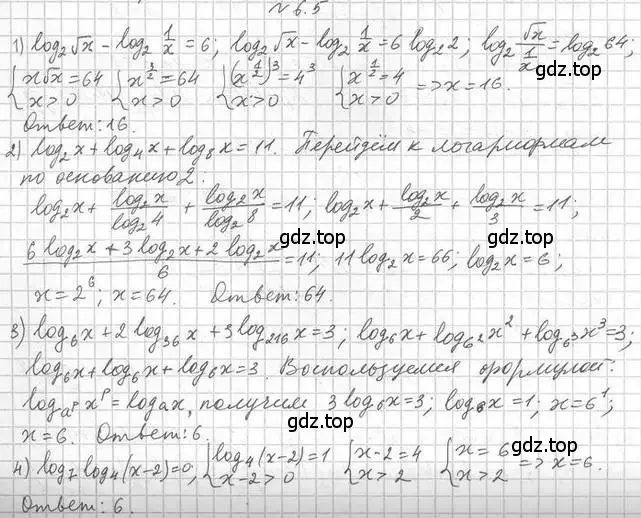 №6.5
1) log₂√x - log₂ 1/x = 6; log₂√x - log₂ 1/x = 6 log₂2; log₂ √x/(1/x) = log₂64;
{x√x = 64 {x^(3/2) = 64 {(x^(1/2))³ = 4³ {x^(1/2) = 4
{x > 0 {x > 0 {x > 0 {x > 0 => x = 16.
Ответ: 16.
2) log₂x + log₄x + log₈x = 11. Перейдём к логарифмам
по основанию 2:
log₂x + log₂x/log₂4 + log₂x/log₂8 = 11; log₂x + log₂x/2 + log₂x/3 = 11;
(6 log₂x + 3 log₂x + 2 log₂x)/6 = 11; 11 log₂x = 66; log₂x = 6;
x = 2⁶; x = 64. Ответ: 64.
3) log₆x + 2 log₃₆x + 3 log₂₁₆x = 3; log₆x + log₆²x² + log₆³x³ = 3;
log₆x + log₆x + log₆x = 3. Воспользуемся формулой:
log_{a^p} x^p = logₐx, получим 3 log₆x = 3; log₆x = 1; x = 6¹;
x = 6. Ответ: 6.
4) log₇ log₄(x-2) = 0, {log₄(x-2) = 1 {x-2 = 4 {x = 6
{x-2 > 0 {x > 2 {x > 2 => x = 6.
Ответ: 6.
gdz.top
gdz.top
gdz.top
gdz.top
gdz.top
gdz.top
gdz.top
gdz.top